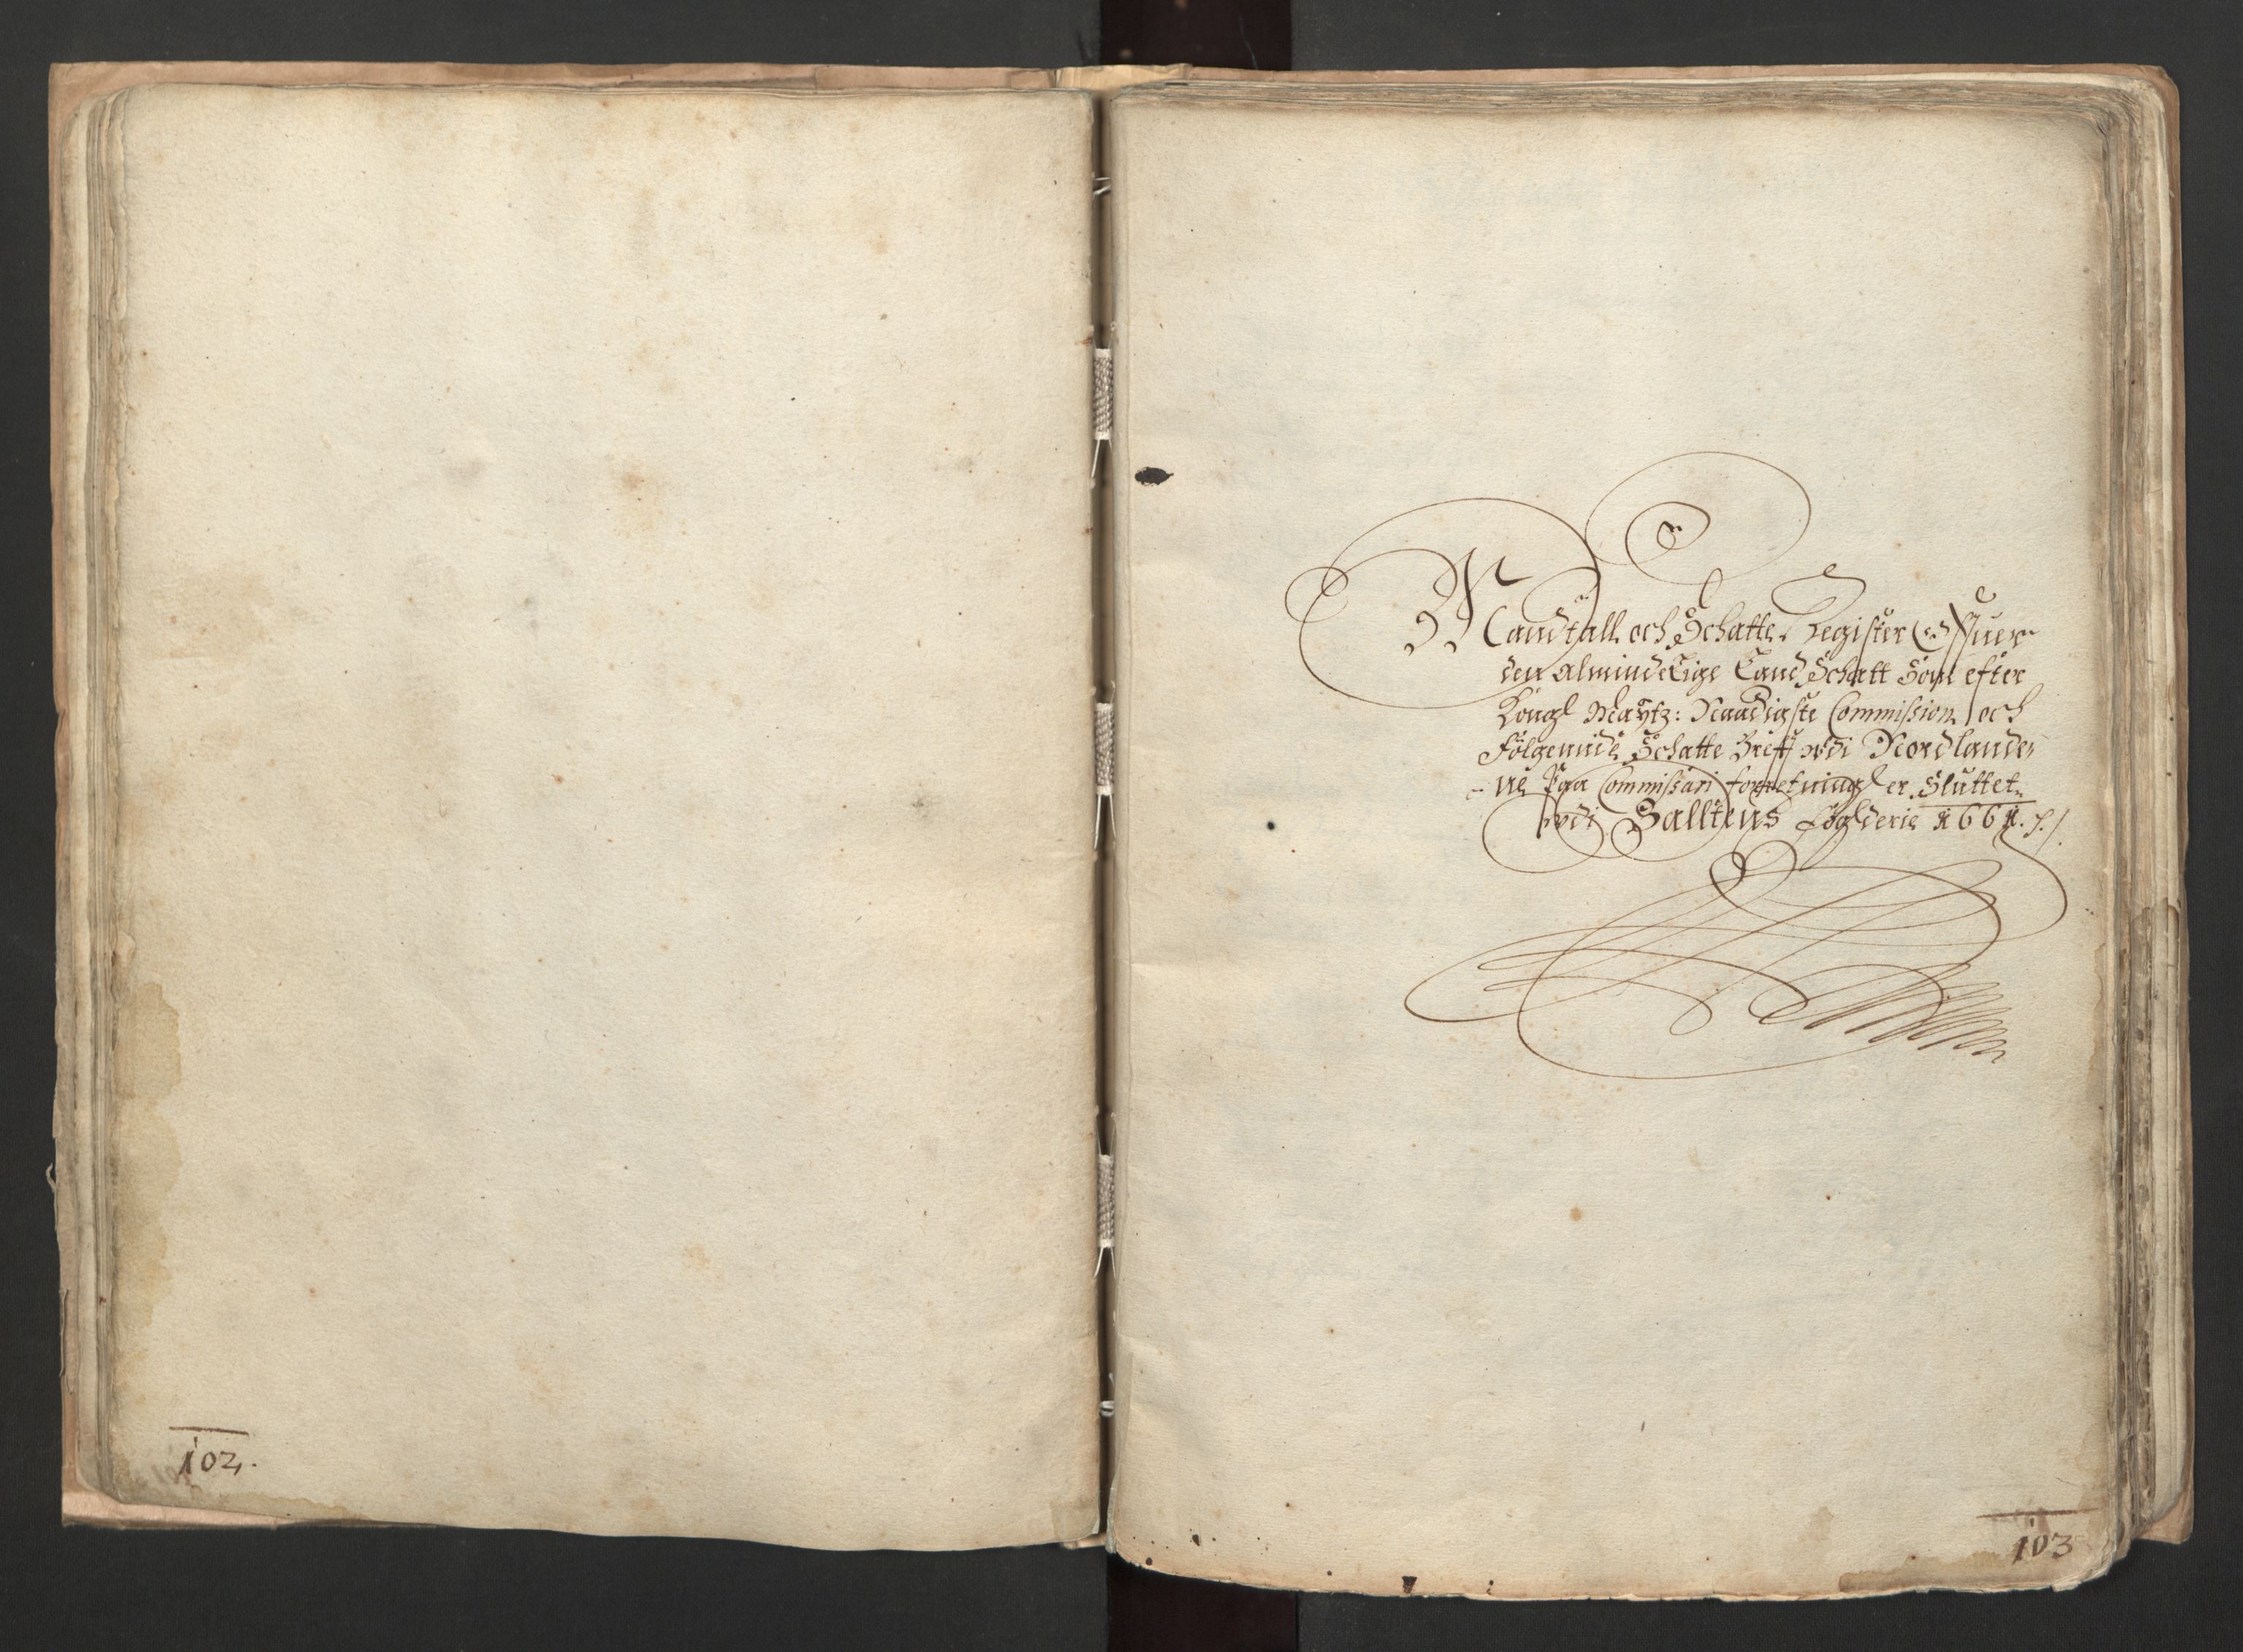 102.
Mandtall och Schatte Register Offuer
den Almindelige Land Schatt Som efter
Kongl Maytz: Naadigste Commission och
Følgennde Schatte Breff vdi Nordlande,
- ne Paa Commissari forretningl er Sluttet
vdi Salltens fogderie 1661.
103